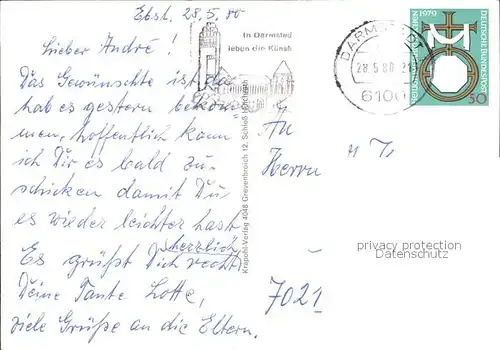 Ebst. 28.5.80
Lieber André!
Das Gewünschte ist da
hab es gestern bekom
men, hoffentlich kann
ich Dir es bald zu-
schicken damit Du
es wieder leichter hast
Es grüßt Dich recht herzlich
Deine Tante Lotte,
viele Grüße an die Eltern.
In Darmstadt
leben die Künste
DARMSTADT
28.5.80
6100
1979
DEUTSCHE BUNDESPOST
50
Krapohl-Verlag 4048 Grevenbroich 12, Schloß Hülchrath
An
Herrn
7021
privacy protection
Datenschutz